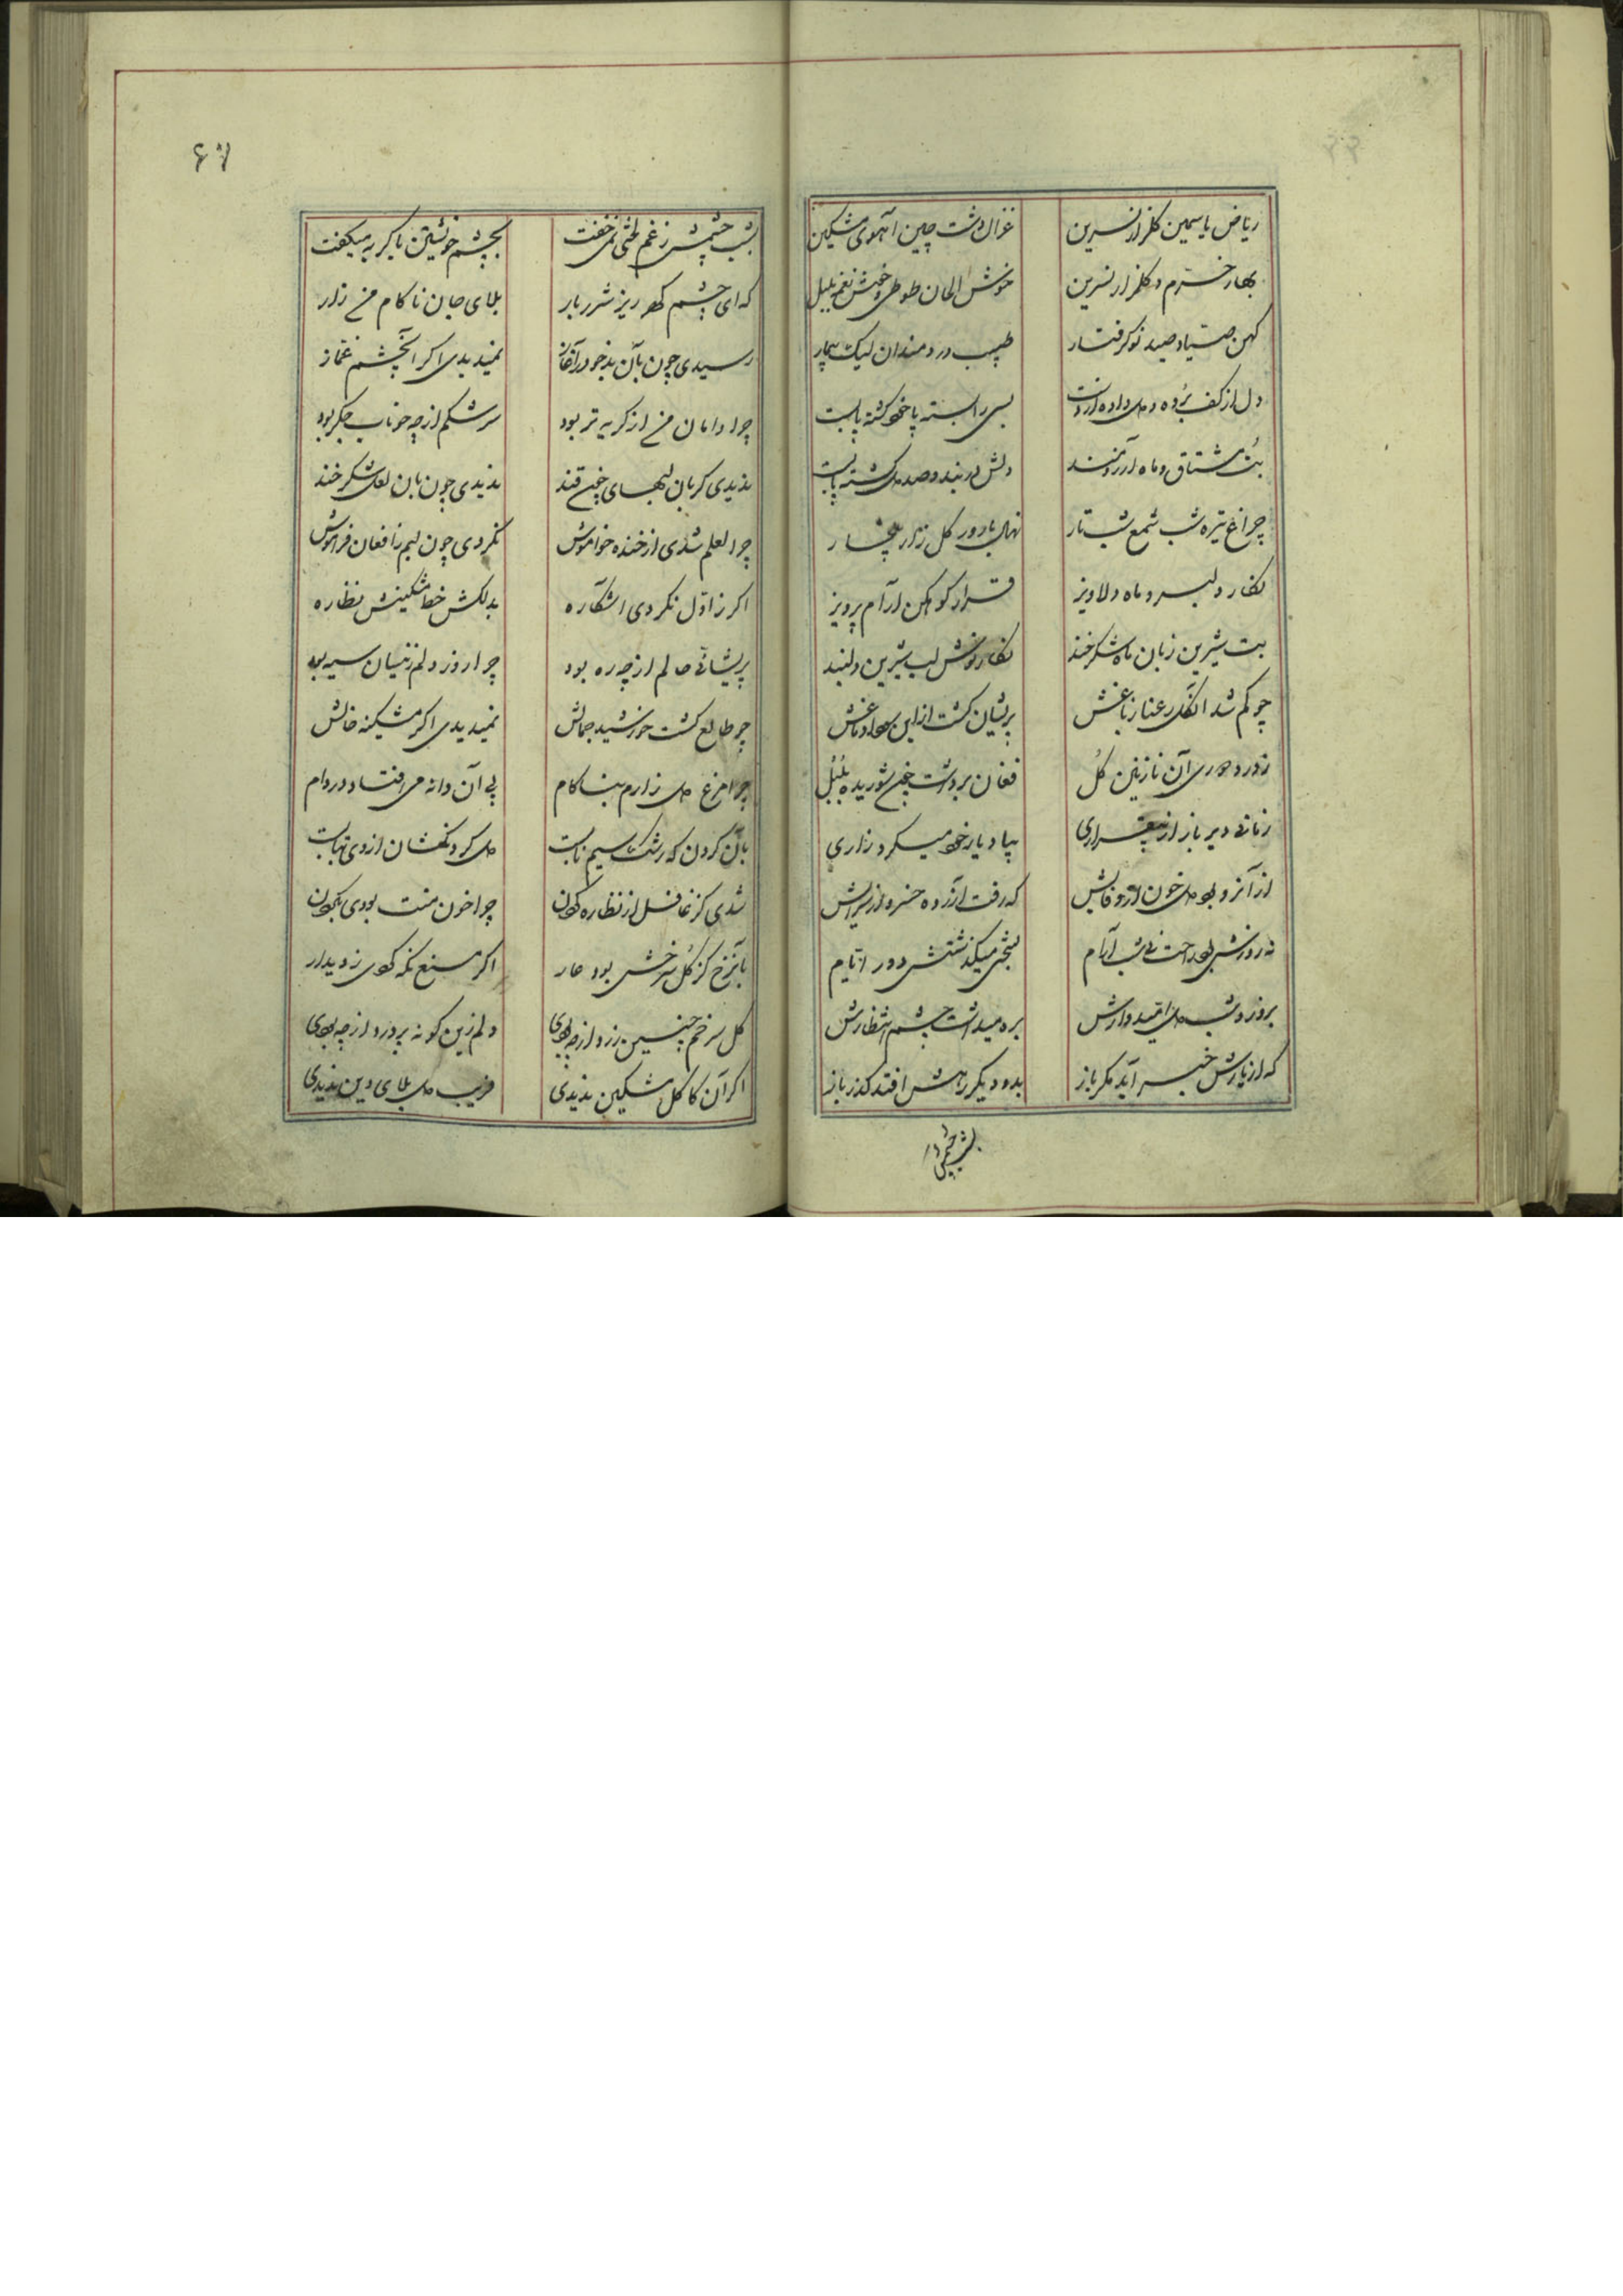 ریاض یاسمین گلزار نسرین غزال دشت چین آهوی مشکین
بهار خرم و گلزار نسرین خوش الحان طوطی و خوش نغمه بلبل
کهن صیاد و صید نو گرفتار طبیب دردمندان لیک بیمار
دل از کف برده و دل داده از دست بسی را بسته پا خود گشته پابست
بت مشتاق و ماه آرزومند دلش در بند و صد دل گشته پابست
چراغ تیره شب شمع شب تار نهال بارور گل زار بیخار
نگار دلبر و ماه دلاویز قرار کوهکن آرام پرویز
بت شیرین زبان ماه شکرخند نگار نوش لب شیرین دلبند
چو گم شد آن گل رعنا ز باغش پریشان گشت از این سودا دماغش
ز درد دوری آن نازنین گل فغان برداشت چون شوریده بلبل
زمانی دیر باز از بیقراری بیاد یار خود میکرد زاری
از آنرو بود دل خون از وفایش که رفت آزرده خسرو از سرایش
نه روزش بود راحت نی شب آرام بسختی میگذشتش دور ایام
بروز و شب دل امیدوارش بره میداشت چشم انتظارش
که از یارش خبر آید مگر باز بدو دیگر رهش افتد گذر باز
بشب چشمش
۶۷
بشب چشمش ز غم لختی نمی خفت بچشم خویشتن با گریه میگفت
که ای چشم گهر ریز شرر بار بلای جان ناکام من زار
رسیدی چون بآن بدخو در آغاز نمیدیدی اگر آن چشم غماز
چرا دامان من از گریه تر بود سرشکم از چه خوناب جگر بود
ندیدی گر بآن لبهای چون قند ندیدی چون بآن لعل شکرخند
چرا لعلم شدی از خنده خاموش نکردی چون لبم را فغان فراموش
اگر ز اول نکردی آشکاره بدلکش خط مشکینش نظاره
پریشانی حالم از چه ره بود چرا روز دلم زینسان سیه بود
چو طالع گشت خورشید جمالش نمیدیدی اگر مشکینه خالش
چرا مرغ دل زارم بناکام پی آن دانه می افتاد در دام
بآن گردن که رشک سیم نابست
شدی گر غافل از نظاره کردن چرا خون منت بودی بگردن
بآنرخ کز گل سرخش بود عار اگر منع نگه کردی ز دیدار
گل سرخم چنین زرد از چه بودی دلم زین گونه پر درد از چه بودی
اگر آن کاکل مشکین ندیدی فریب دل بلای دین ندیدی